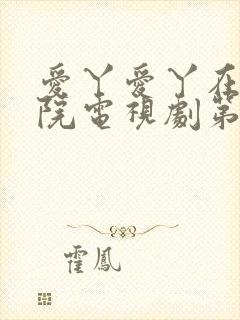 愛丫愛丫在
院電視劇第
霍鳳